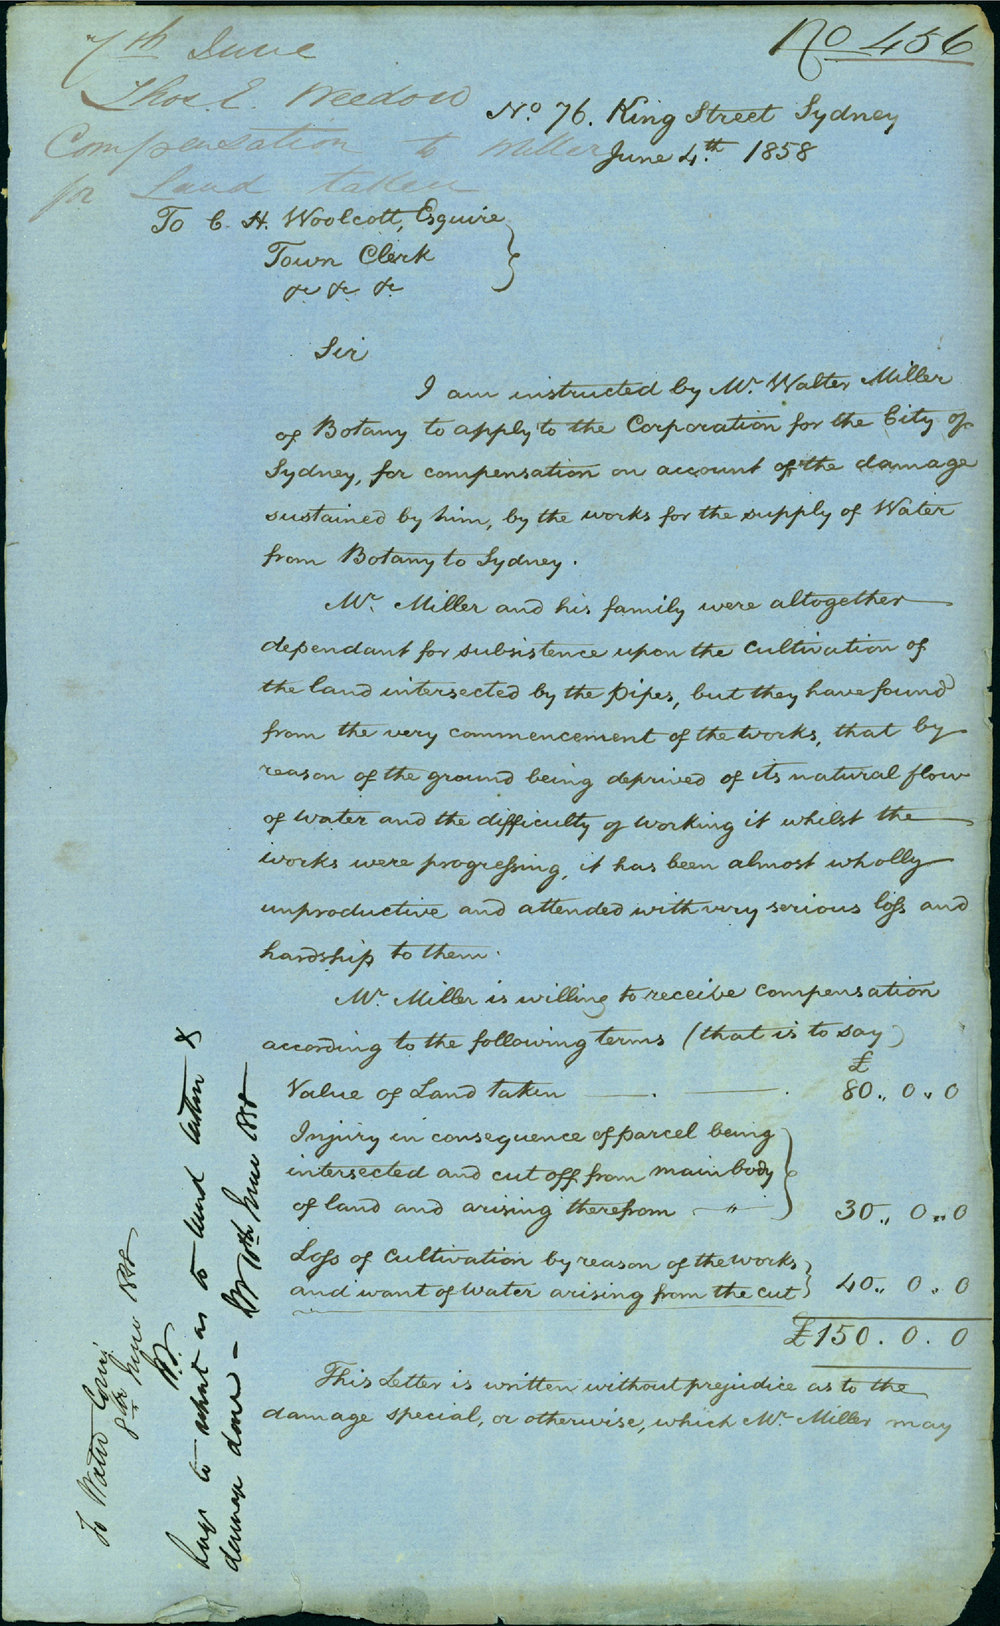 No 456
7th June
Thos. E. Weedon
Compensation to Miller
for Land taken
No. 76. King Street Sydney
June 4th. 1858
To C. H. Woolcott, Esquire
Town Clerk
&c &c &c
Sir
I am instructed by Mr. Walter Miller
of Botany to apply to the Corporation for the City of
Sydney, for compensation on account of the damage
sustained by him, by the works for the supply of Water
from Botany to Sydney.
Mr. Miller and his family were altogether
dependant for subsistence upon the cultivation of
the land intersected by the pipes, but they have found
from the very commencement of the works, that by
reason of the ground being deprived of its natural flow
of water and the difficulty of working it whilst the
works were progressing, it has been almost wholly
unproductive and attended with very serious loss and
hardship to them.
Mr. Miller is willing to receive compensation
according to the following terms (that is to say)
£
Value of Land taken — . — . 80 ,, 0 ,, 0
Injury in consequence of parcel being
intersected and cut off from main body
of land and arising therefrom — " — 30 ,, 0 ,, 0
Loss of cultivation by reason of the works
and want of water arising from the cut 40 ,, 0 . 0
£150 . 0 . 0
This Letter is written without prejudice as to the
damage special, or otherwise, which Mr. Miller may
To Water Comee.
8th June 1858
to what as to land taken &
damage done — 10th June 1858